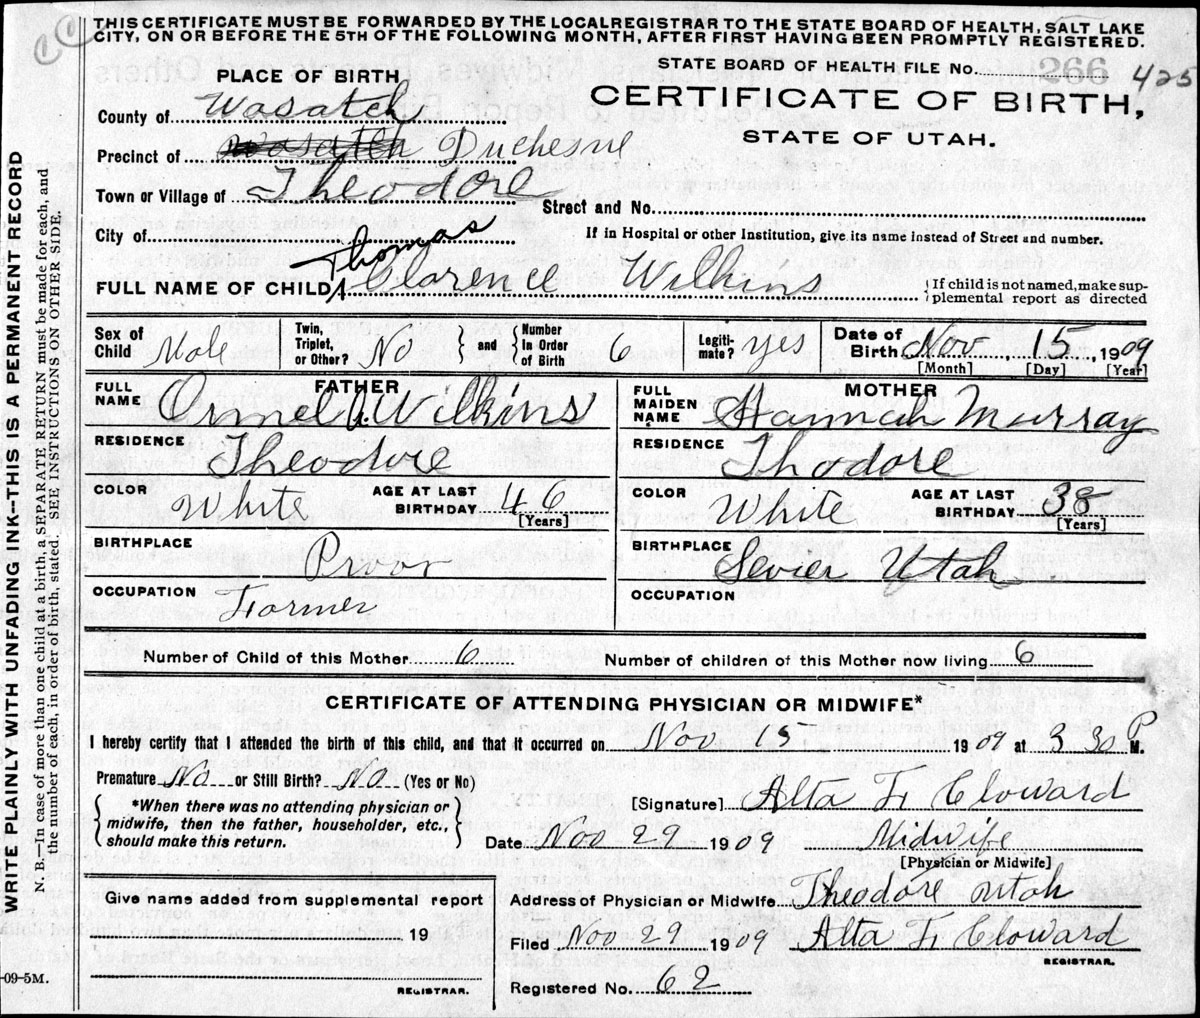 THIS CERTIFICATE MUST BE FORWARDED BY THE LOCAL REGISTRAR TO THE STATE BOARD OF HEALTH, SALT LAKE
CITY, ON OR BEFORE THE 5TH OF THE FOLLOWING MONTH, AFTER FIRST HAVING BEEN PROMPTLY REGISTERED.
STATE BOARD OF HEALTH FILE No. 266 425
PLACE OF BIRTH,
CERTIFICATE OF BIRTH,
STATE OF UTAH.
County of Wasatch
Precinct of Wasatch Duchesne
Town or Village of Theodore
Street and No.
City of
If in Hospital or other Institution, give its name instead of Street and number.
Thomas
FULL NAME OF CHILD Clarence Wilkins
If child is not named, make sup-
plemental report as directed
Sex of Child Male
Twin, Triplet, or Other? No and Number In Order of Birth 6
Legiti-mate? yes
Date of Birth Nov 15, 1909
[Month] [Day] [Year]
FATHER
FULL NAME Ormel A. Wilkins
RESIDENCE Theodore
COLOR White AGE AT LAST BIRTHDAY 46
[Years]
BIRTHPLACE Provo
OCCUPATION Farmer
MOTHER
FULL MAIDEN NAME Hannah Murray
RESIDENCE Thodore
COLOR White AGE AT LAST BIRTHDAY 38
[Years]
BIRTHPLACE Sevier Utah
OCCUPATION
Number of Child of this Mother 6 Number of children of this Mother now living 6
CERTIFICATE OF ATTENDING PHYSICIAN OR MIDWIFE*
I hereby certify that I attended the birth of this child, and that it occurred on Nov 15 1909 at 3 30 P M.
Premature No or Still Birth? No (Yes or No)
*When there was no attending physician or
midwife, then the father, householder, etc.,
should make this return.
[Signature] Alta F. Cloward
Date Nov 29 1909 Midwife
[Physician or Midwife]
Give name added from supplemental report
19
REGISTRAR.
Address of Physician or Midwife Theodore Utah
Filed Nov 29 1909 Alta F. Cloward
REGISTRAR.
Registered No. 62
-09-5M.
WRITE PLAINLY WITH UNFADING INK--THIS IS A PERMANENT RECORD
N. B.—In case of more than one child at a birth, a SEPARATE RETURN must be made for each, and
the number of each, in order of birth, stated. SEE INSTRUCTIONS ON OTHER SIDE.